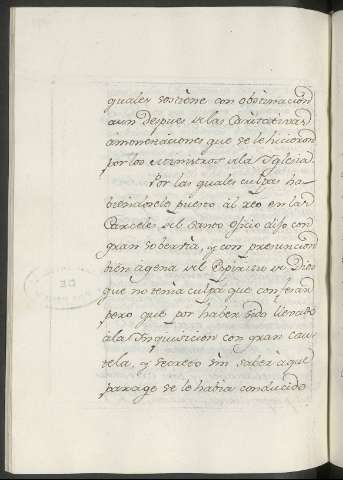 quales sostiene con obstinación
aun despues de las Caritativas
amonestaciones que se le hicieron
por los Ministros de la Iglesia.
Por las quales culpas ha-
biendosele puesto al reo en las
Carceles del Santo Oficio dijo con
gran soberbia, y con presuncion
bien agena del Espiritu de Dios
que no tenia culpa que confesar
pero que por haber sido llevado
a la Inquisicion con gran cau-
tela, y secreto sin saber a que
parage se le habia conducido